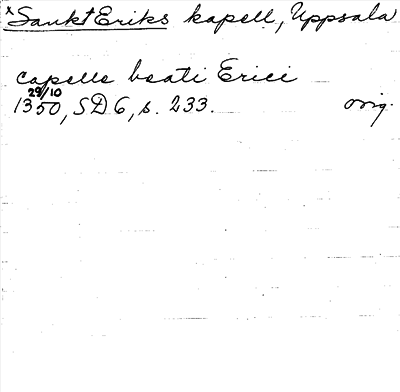 x Sankt Eriks kapell, Uppsala
capelle beati Erici
29/10
1350, SD 6, s. 233. orig.